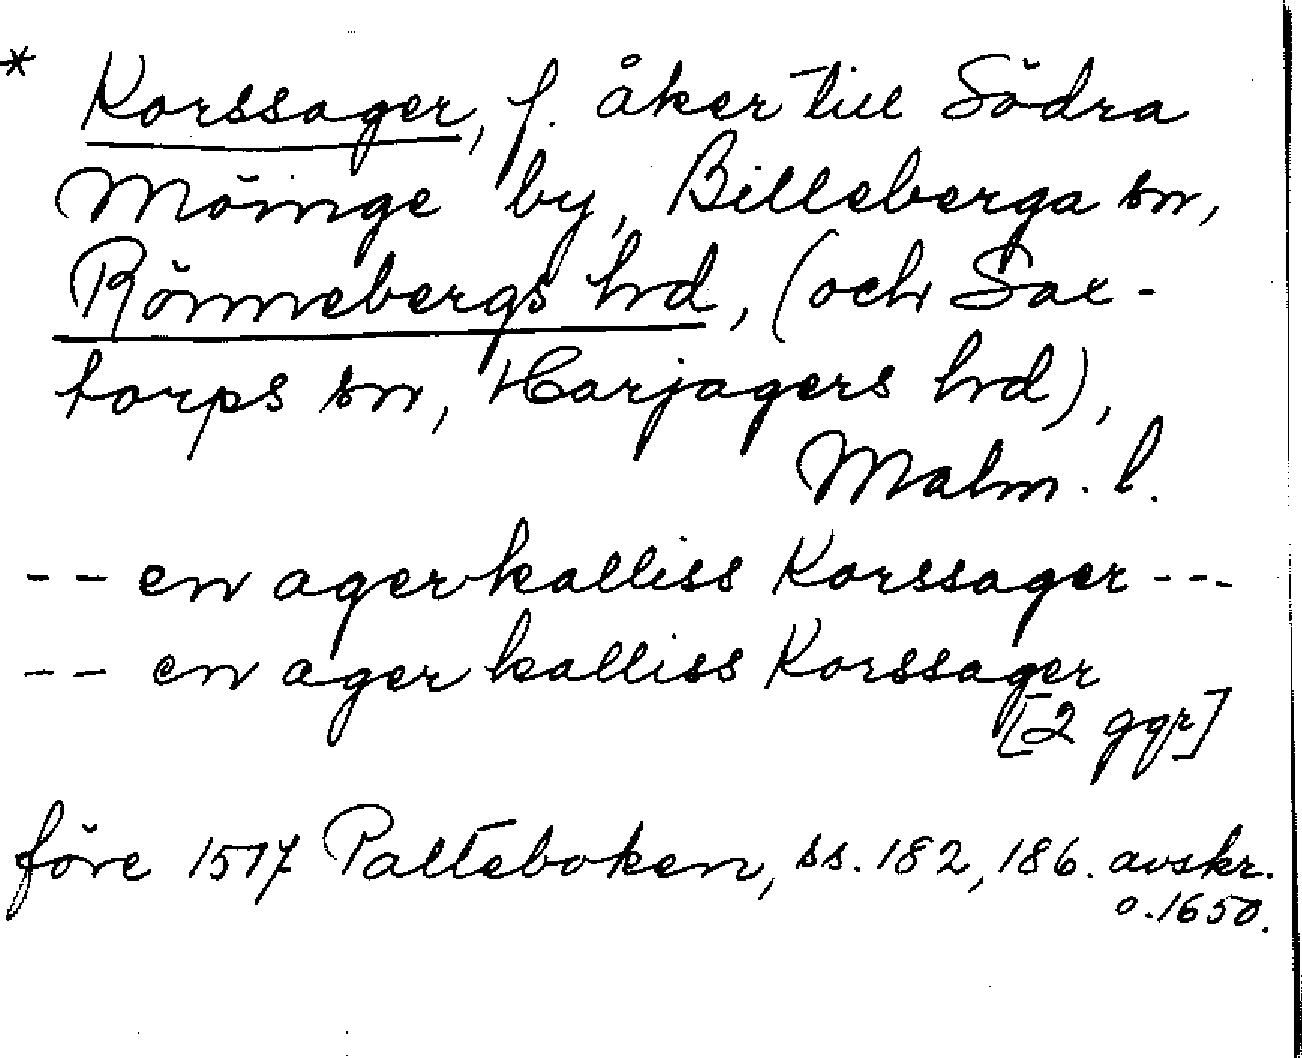 * Korssager, f. åker till Södra
Möinge by, Billeberga sn,
Rönnebergs hd, (och Sax-
torps sn, Harjagers hd),
Malm. l.
-- en ager kalliss Korssager ---
-- en ager kalliss Korssager
[2 ggr]
före 1517 Palteboken, ss. 182, 186. avskr.
o. 1650.